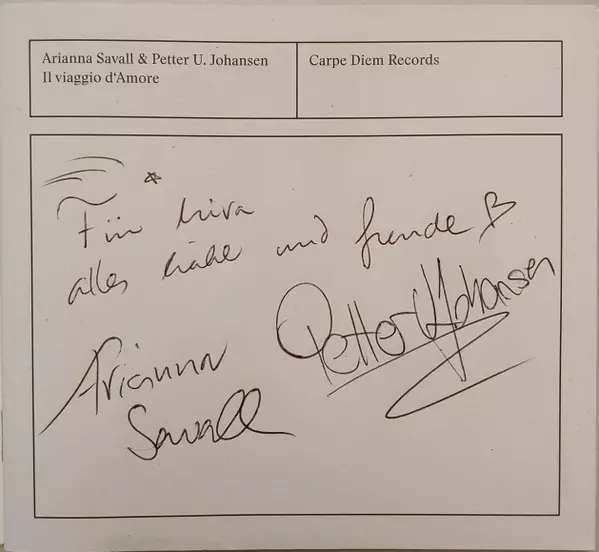 Arianna Savall & Petter U. Johansen
Il viaggio d'Amore
Carpe Diem Records
Für
alles liebe und freude
Arianna
Savall
Petter U Johansen